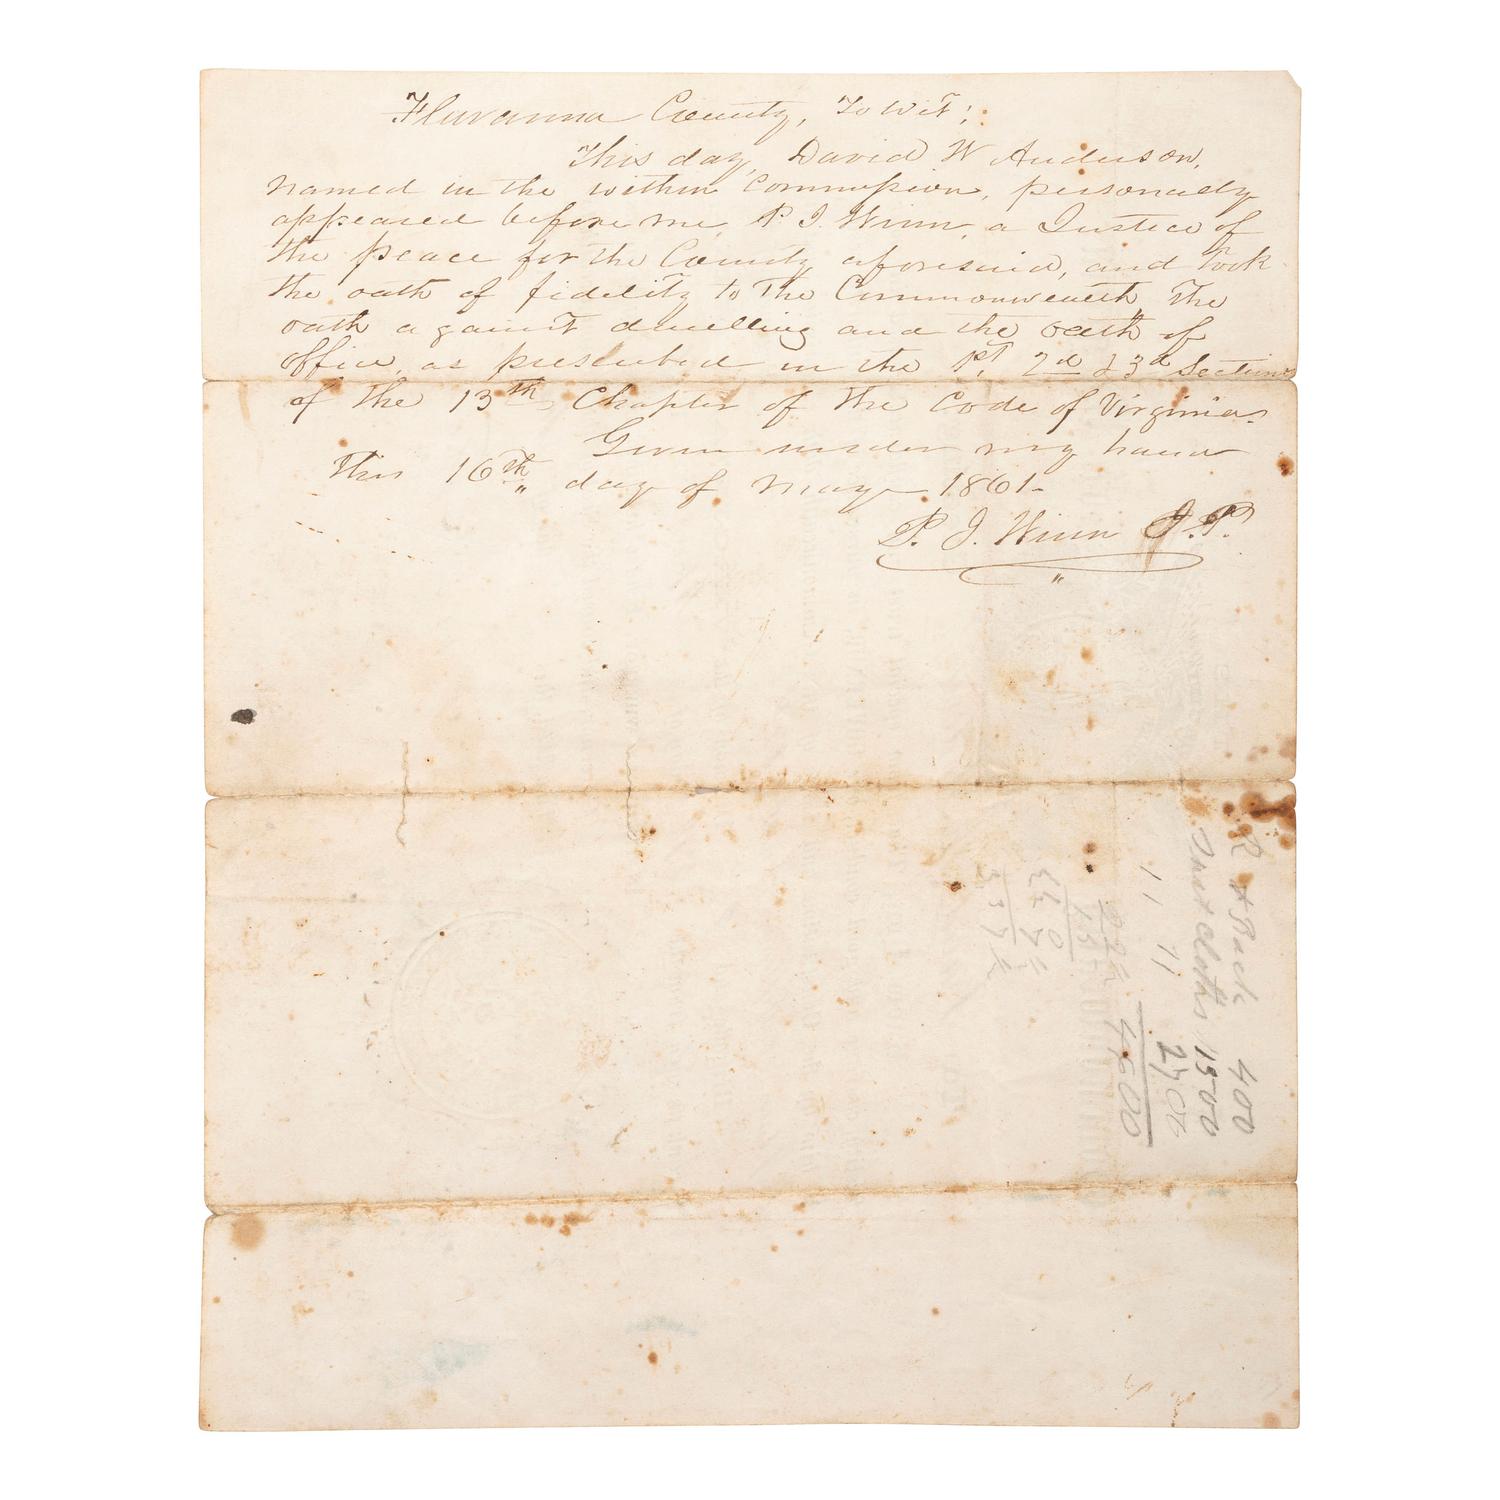 Fluvanna County, To Wit;
This day, David W Anderson,
named in the within Commission, personally
appeared before me, P. J. Winn, a Justice of
the peace for the County aforesaid, and took
the oath of fidelity to The Commonwealth, The
oath against duelling and the oath of
office, as prescribed in the 1st, 2nd & 3d Sections
of the 13th Chapter of the Code of Virginia.
Given under my hand
This 16th day of may 1861.
P. J. Winn J. P.
400
1500
11 11 2700
4600